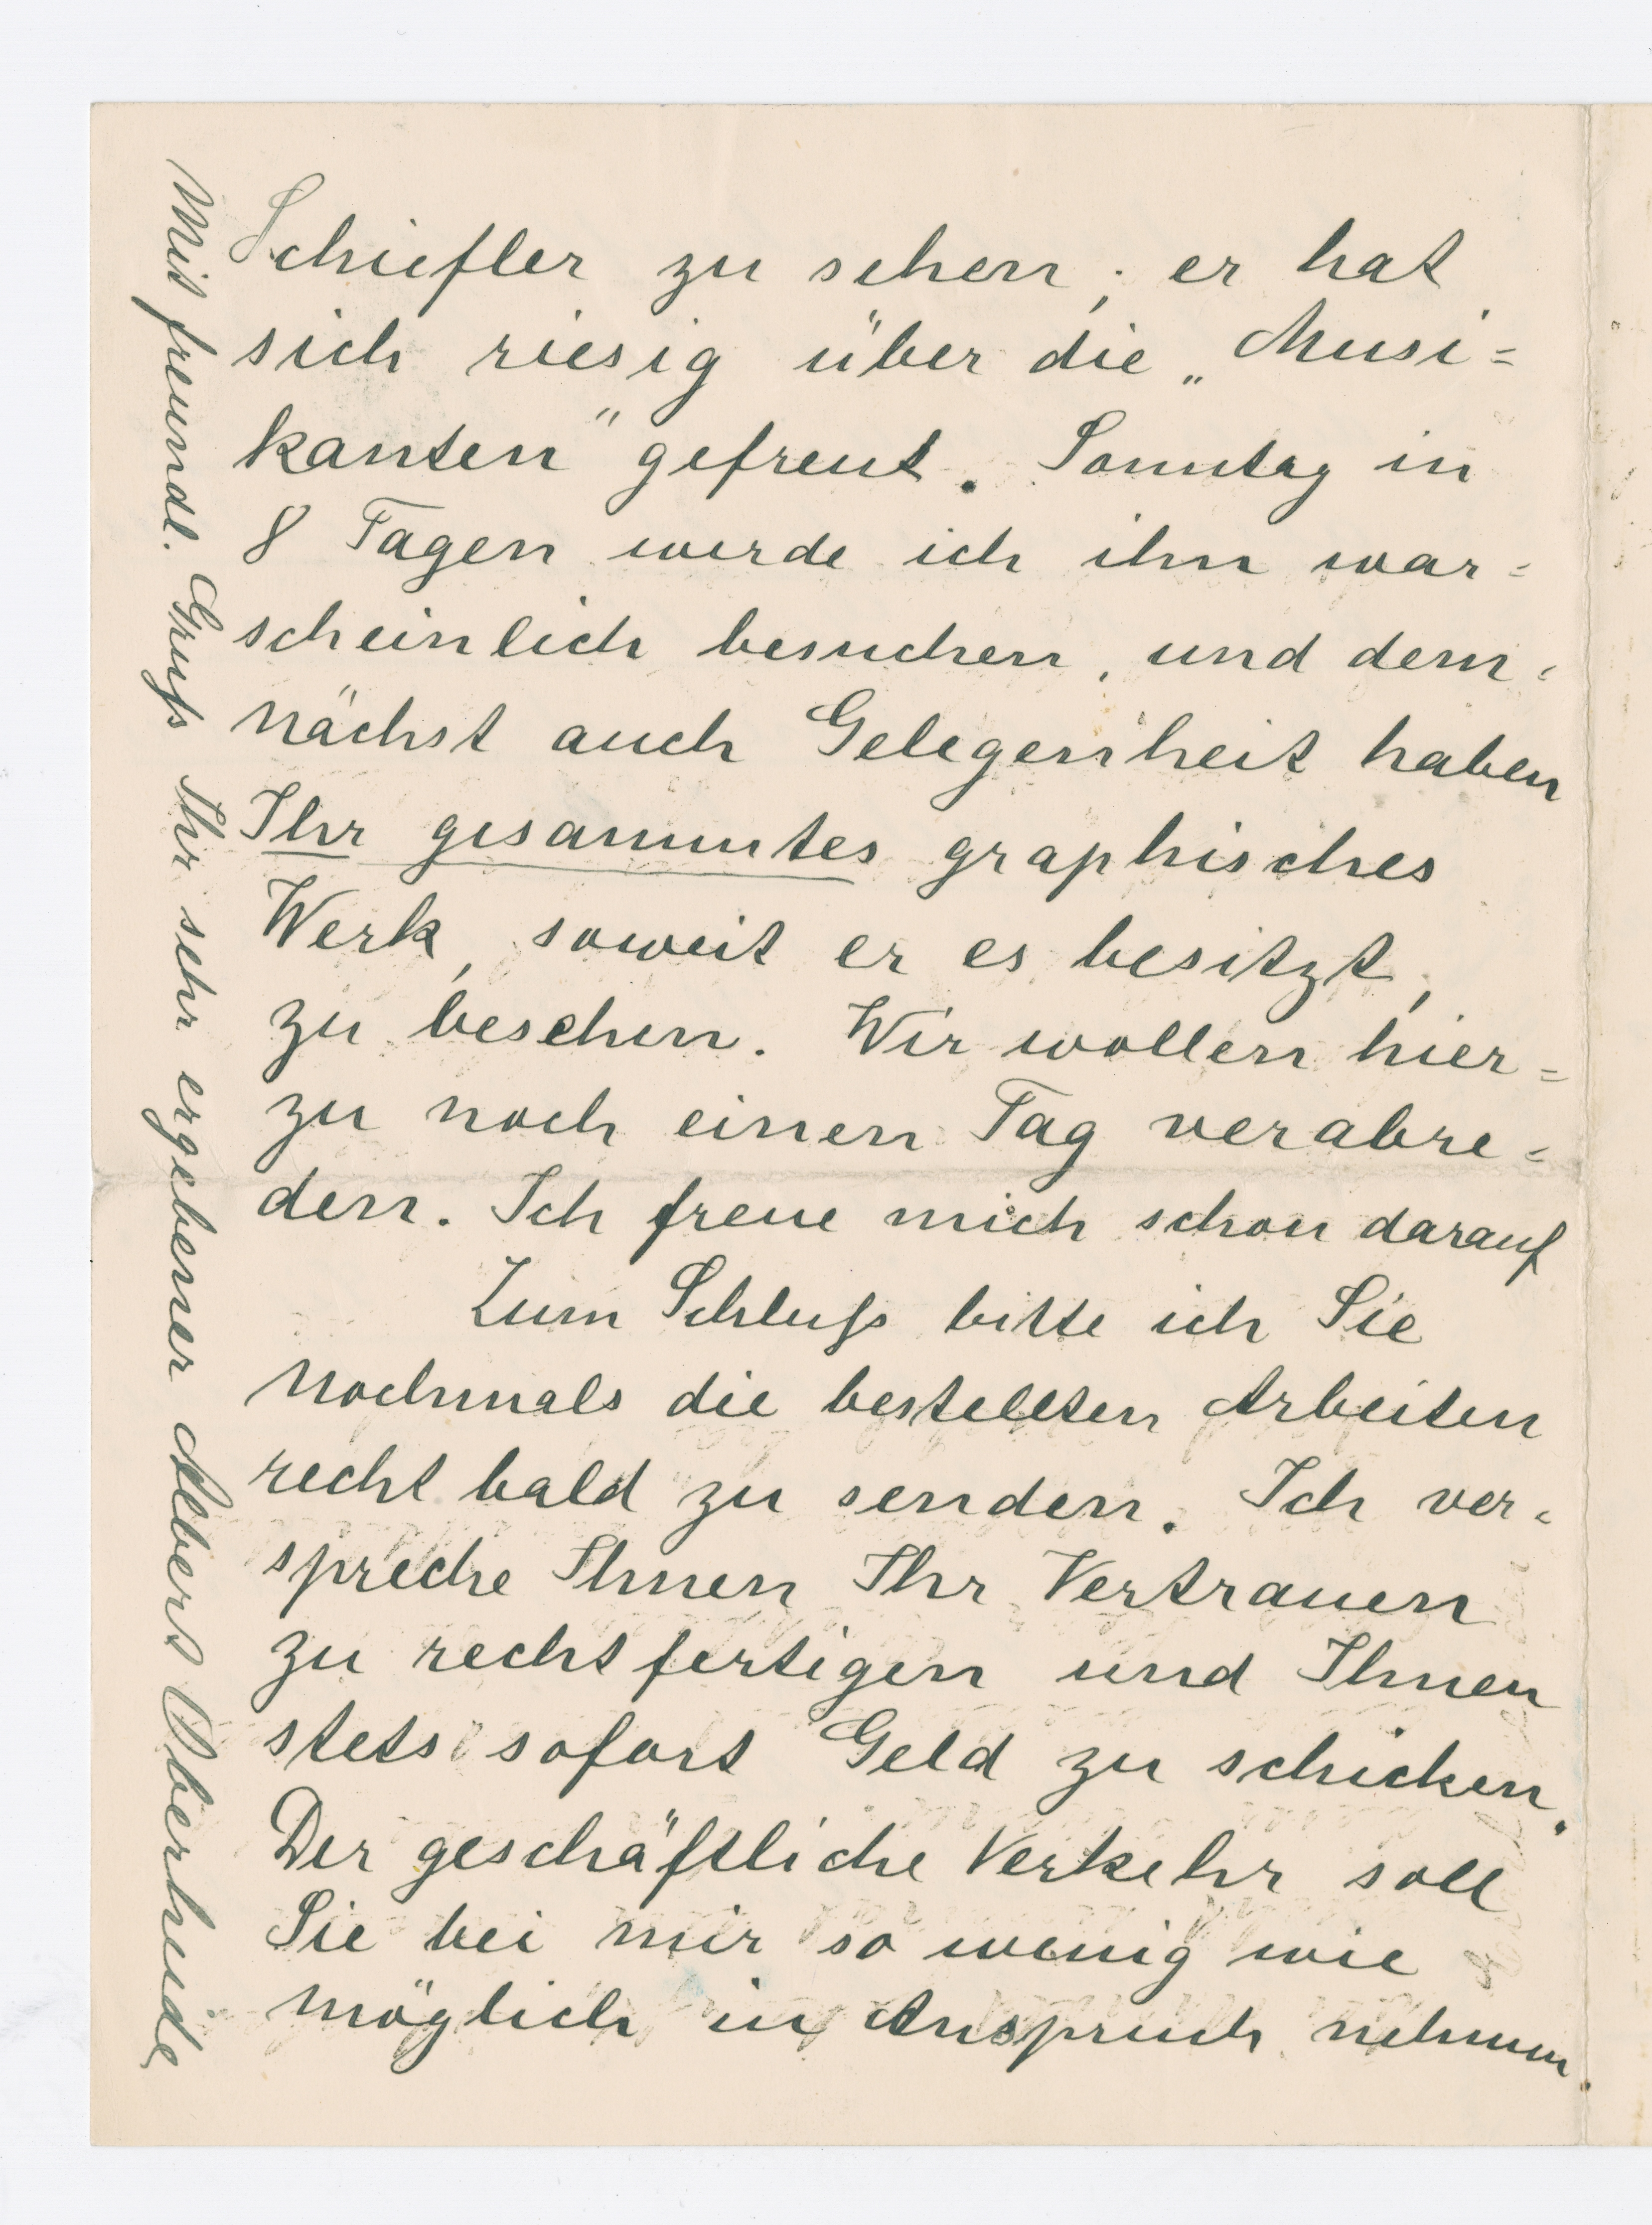 Schiefler zu sehen; er hat
sich riesig über die „Musi=
kanten" gefreut. Sonntag in
8 Tagen werde ich ihn war=
scheinlich besuchen, und dem=
nächst auch Gelegenheit haben
Ihr gesammtes graphisches
Werk, soweit er es besitzt,
zu besehen. Wir wollen hier=
zu noch einen Tag verabre=
den. Ich freue mich schon darauf
Zum Schluß bitte ich Sie
nochmals die bestellten Arbeiten
recht bald zu senden. Ich ver=
spreche Ihnen Ihr Vertrauen
zu rechtfertigen und Ihnen
stets sofort Geld zu schicken.
Der geschäftliche Verkehr soll
Sie bei mir so wenig wie
möglich in Anspruch nehmen.
Mit freundl. Gruß Ihr sehr ergebener Albert Oberheide